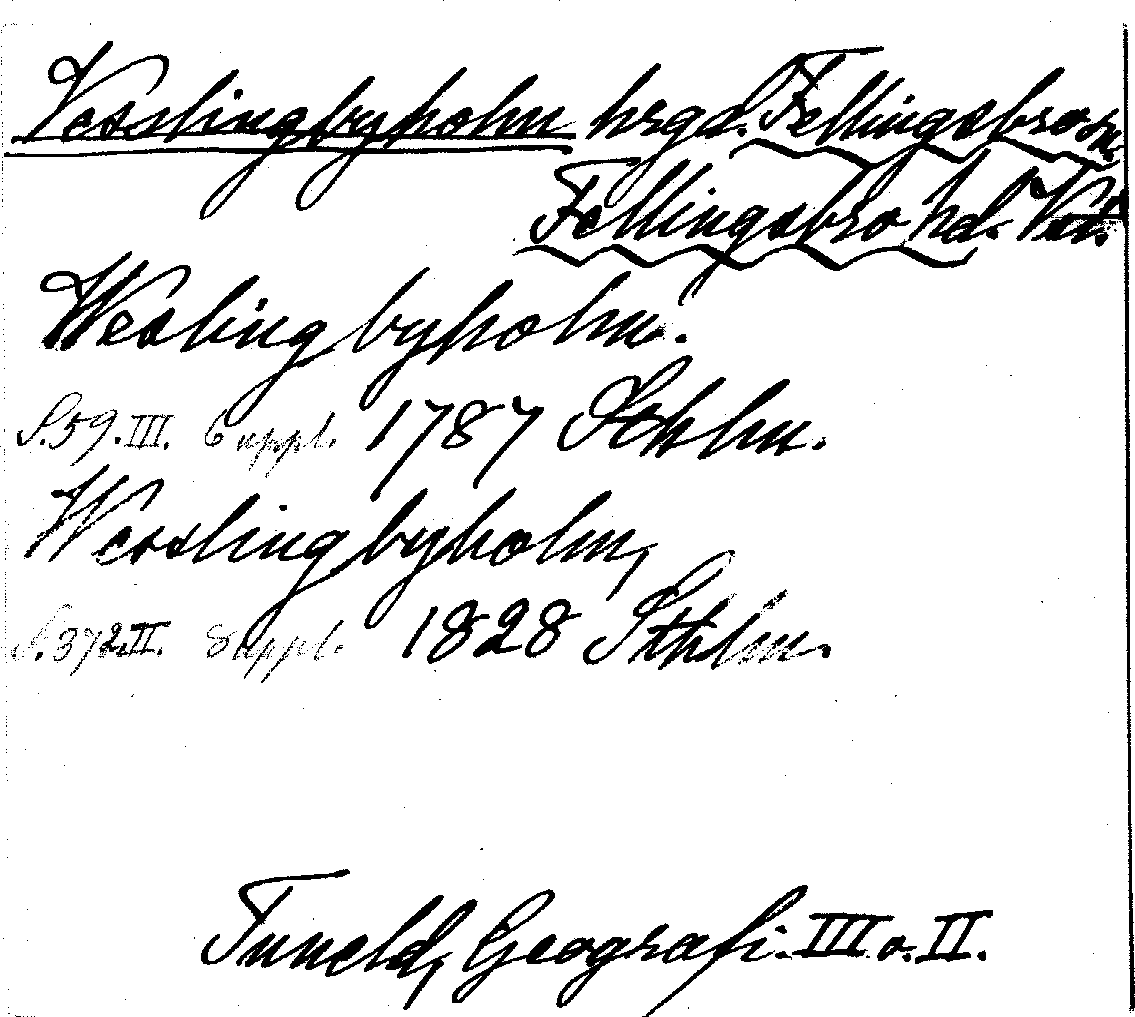 Vesslingbyholm hrgd. Fellingsbro sn.
Fellingsbro hd. Vstm.
Weslingbyholm.
S. 59. III. Suppl. 1787 Sthlm.
Wesslingbyholm,
S. 372. II. Suppl. 1828 Sthlm.
Tuneld, Geografi. III o. II.